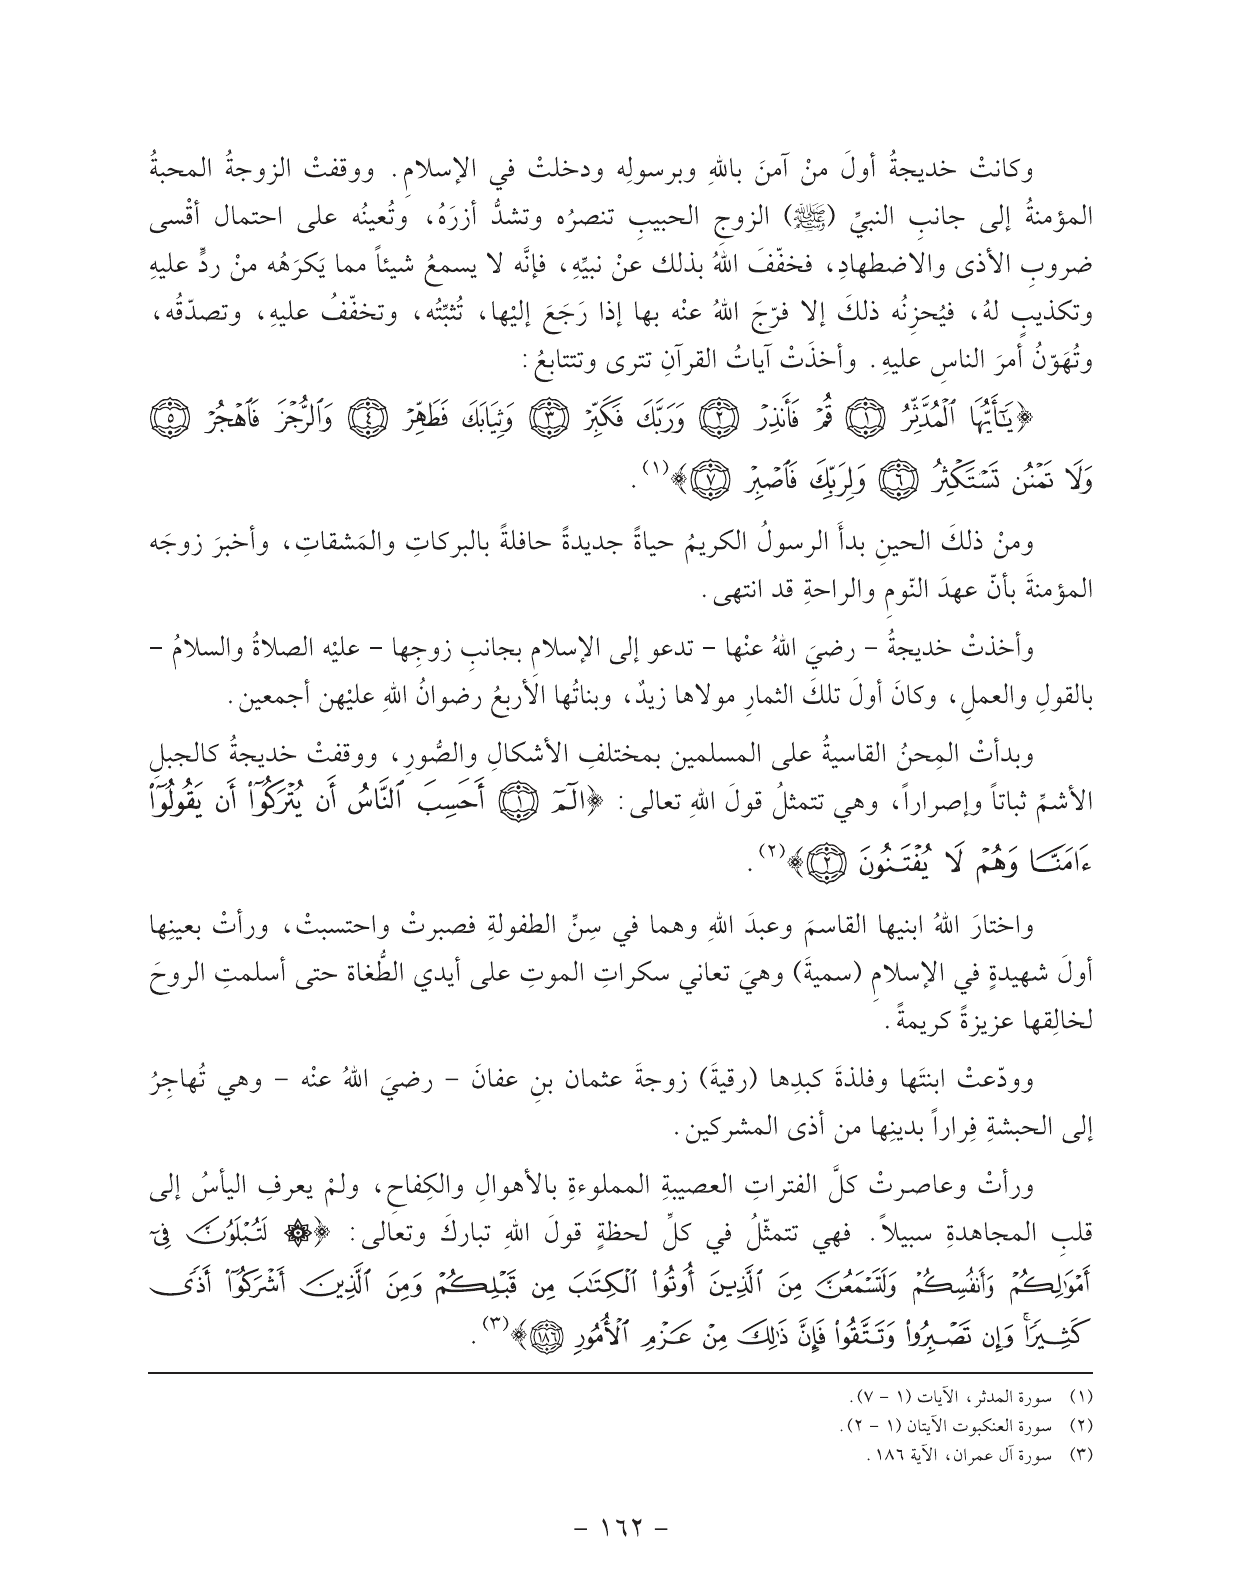 وكانتْ خديجةُ أولَ منْ آمنَ باللهِ وبرسولِه ودخلتْ في الإسلامِ. ووقفتْ الزوجةُ المحبةُ
المؤمنةُ إلى جانبِ النبيِّ (ﷺ) الزوجِ الحبيبِ تنصرُه وتشدُّ أزرَهُ، وتُعينُه على احتمال أقْسى
ضروبِ الأذى والاضطهادِ، فخفّفَ اللهُ بذلك عنْ نبيِّهِ، فإنَّه لا يسمعُ شيئاً مما يَكرَهُه منْ ردٍّ عليهِ
وتكذيبٍ لهُ، فيُحزِنُه ذلكَ إلا فرّجَ اللهُ عنْه بها إذا رَجَعَ إليْها، تُثبِّتُه، وتخفّفُ عليهِ، وتصدّقُه،
وتُهَوّنُ أمرَ الناسِ عليهِ. وأخذَتْ آياتُ القرآنِ تترى وتتتابعُ:
﴿يَـٰٓأَيُّهَا ٱلْمُدَّثِّرُ ۝١ قُمْ فَأَنذِرْ ۝٢ وَرَبَّكَ فَكَبِّرْ ۝٣ وَثِيَابَكَ فَطَهِّرْ ۝٤ وَٱلرُّجْزَ فَٱهْجُرْ ۝٥
وَلَا تَمْنُن تَسْتَكْثِرُ ۝٦ وَلِرَبِّكَ فَٱصْبِرْ ۝٧﴾(١).
ومنْ ذلكَ الحينِ بدأَ الرسولُ الكريمُ حياةً جديدةً حافلةً بالبركاتِ والمَشقاتِ، وأخبرَ زوجَه
المؤمنةَ بأنّ عهدَ النّومِ والراحةِ قد انتهى.
وأخذتْ خديجةُ – رضيَ اللهُ عنْها – تدعو إلى الإسلامِ بجانبِ زوجِها – عليْه الصلاةُ والسلامُ –
بالقولِ والعملِ، وكانَ أولَ تلكَ الثمارِ مولاها زيدٌ، وبناتُها الأربعُ رضوانُ اللهِ عليْهن أجمعين.
وبدأتْ المِحنُ القاسيةُ على المسلمين بمختلفِ الأشكالِ والصُّورِ، ووقفتْ خديجةُ كالجبلِ
الأشمِّ ثباتاً وإصراراً، وهي تتمثلُ قولَ اللهِ تعالى: ﴿الٓمٓ ۝١ أَحَسِبَ ٱلنَّاسُ أَن يُتْرَكُوٓا۟ أَن يَقُولُوٓا۟
ءَامَنَّا وَهُمْ لَا يُفْتَنُونَ ۝٢﴾(٢).
واختارَ اللهُ ابنيها القاسمَ وعبدَ اللهِ وهما في سِنِّ الطفولةِ فصبرتْ واحتسبتْ، ورأتْ بعينِها
أولَ شهيدةٍ في الإسلامِ (سميةَ) وهيَ تعاني سكراتِ الموتِ على أيدي الطُّغاة حتى أسلمتِ الروحَ
لخالِقها عزيزةً كريمةً.
وودّعتْ ابنتَها وفلذةَ كبدِها (رقيةَ) زوجةَ عثمان بنِ عفانَ – رضيَ اللهُ عنْه – وهي تُهاجِرُ
إلى الحبشةِ فِراراً بدينِها من أذى المشركين.
ورأتْ وعاصرتْ كلَّ الفتراتِ العصيبةِ المملوءةِ بالأهوالِ والكِفاحِ، ولمْ يعرفِ اليأسُ إلى
قلبِ المجاهدةِ سبيلاً. فهي تتمثّلُ في كلِّ لحظةٍ قولَ اللهِ تباركَ وتعالى: ﴿۞ لَتُبْلَوُنَّ فِىٓ
أَمْوَٰلِكُمْ وَأَنفُسِكُمْ وَلَتَسْمَعُنَّ مِنَ ٱلَّذِينَ أُوتُوا۟ ٱلْكِتَـٰبَ مِن قَبْلِكُمْ وَمِنَ ٱلَّذِينَ أَشْرَكُوٓا۟ أَذًى
كَثِيرًا ۚ وَإِن تَصْبِرُوا۟ وَتَتَّقُوا۟ فَإِنَّ ذَٰلِكَ مِنْ عَزْمِ ٱلْأُمُورِ ۝١٨٦﴾(٣).
(١) سورة المدثر، الآيات (١ – ٧).
(٢) سورة العنكبوت الآيتان (١ – ٢).
(٣) سورة آل عمران، الآية ١٨٦.
– ١٦٢ –